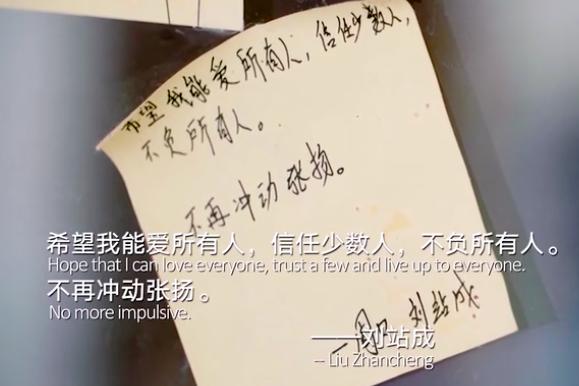 希望我能爱所有人，信任少数人，
不负所有人。
不再冲动张扬。
希望我能爱所有人，信任少数人，不负所有人。
Hope that I can love everyone, trust a few and live up to everyone.
不再冲动张扬。
No more impulsive.
刘站成
——刘站成
-- Liu Zhancheng